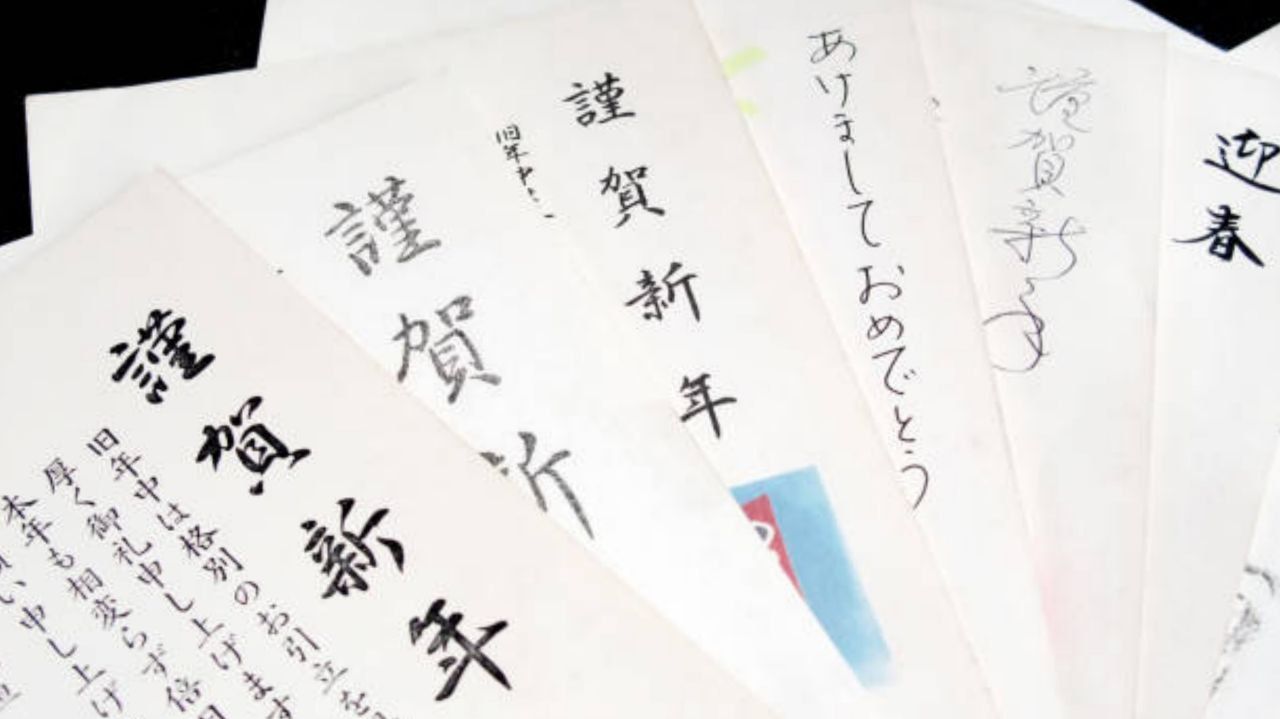 謹賀新年
旧年中は格別のお引立を
厚く御礼申し上げます
本年も相変らず倍旧
い申し上げ
謹賀新
旧年中
謹賀新年
あけましておめでとう
謹賀新年
迎春